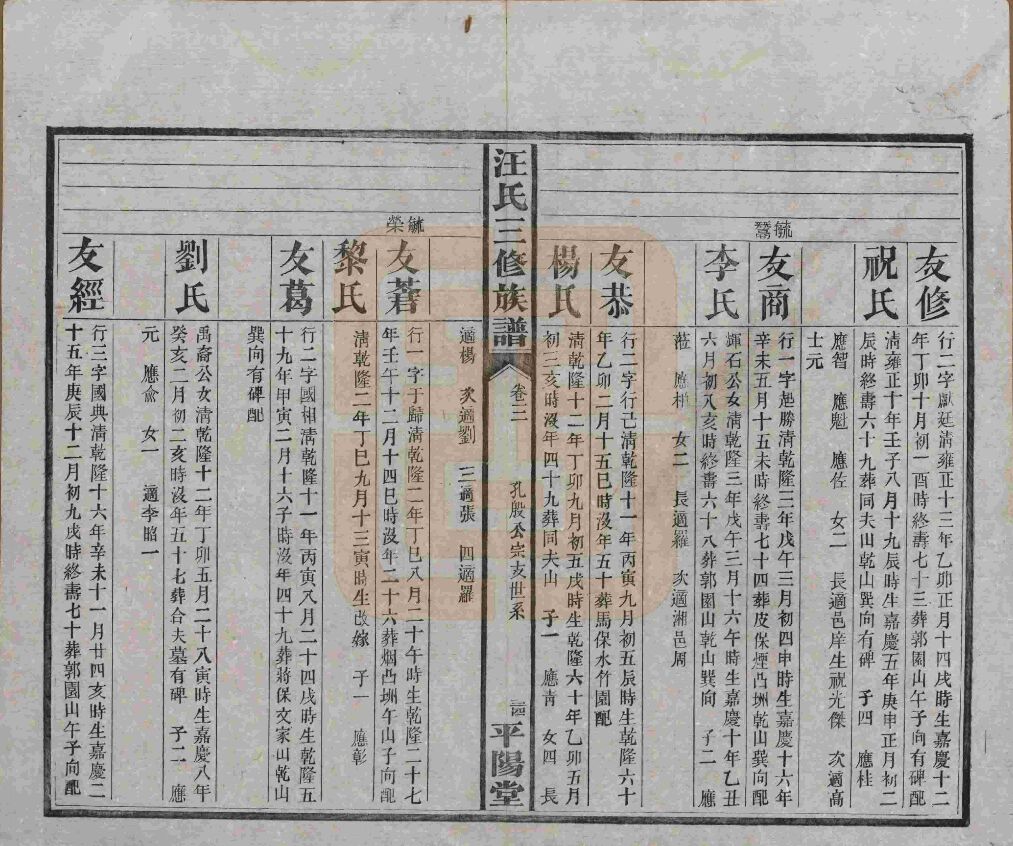 友修
行二字獻廷清雍正十三年乙卯正月十四戌時生嘉慶十二
年丁卯十月初一酉時終壽七十三葬郭園山午子向有碑配
祝氏
清雍正十年壬子八月十九辰時生嘉慶五年庚申正月初二
辰時終壽六十九葬同夫山乾山巽向有碑 子四 應桂
應智 應魁 應佐 女二 長適邑庠生祝光傑 次適高
士元
毓
友商
行一字起勝清乾隆三年戊午三月初四申時生嘉慶十六年
辛未五月十五未時終壽七十四葬皮保煙凸坳乾山巽向配
李氏
輝石公女清乾隆三年戊午三月十六午時生嘉慶十年乙丑
六月初八亥時終壽六十八葬郭園山乾山巽向 子二 應
蒞 應柑 女二 長適羅 次適湘邑周
友恭
行二字行己清乾隆十一年丙寅九月初五辰時生乾隆六十
年乙卯二月十五巳時沒年五十葬馬保水竹園配
楊氏
清乾隆十二年丁卯九月初五戌時生乾隆六十年乙卯五月
初三亥時沒年四十九葬同夫山 子一 應青 女四 長
汪氏三修族譜
卷三
孔殷公宗支世系
平陽堂
適楊 次適劉 三適張 四適羅
毓榮
友蒼
行一字于歸清乾隆二年丁巳八月二十午時生乾隆二十七
年壬午十二月十四巳時沒年二十六葬烟凸坳午山子向配
黎氏
清乾隆二年丁巳九月十三寅時生改嫁 子一 應彰
友葛
行二字國相清乾隆十一年丙寅八月二十四戌時生乾隆五
十九年甲寅二月十六子時沒年四十九葬將保文家山乾山
巽向有碑配
劉氏
禹裔公女清乾隆十二年丁卯五月二十八寅時生嘉慶八年
癸亥二月初二亥時沒年五十七葬合夫墓有碑 子二 應
元 應俞 女一 適李昭一
友經
行三字國典清乾隆十六年辛未十一月廿四亥時生嘉慶二
十五年庚辰十二月初九戌時終壽七十葬郭園山午子向配